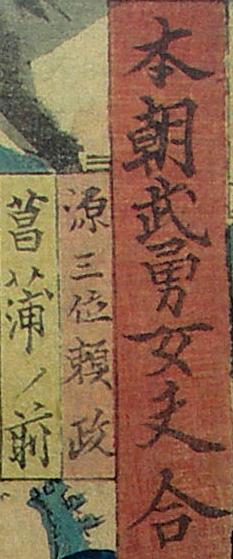 本朝武勇女夫合
源三位頼政
菖蒲ノ前